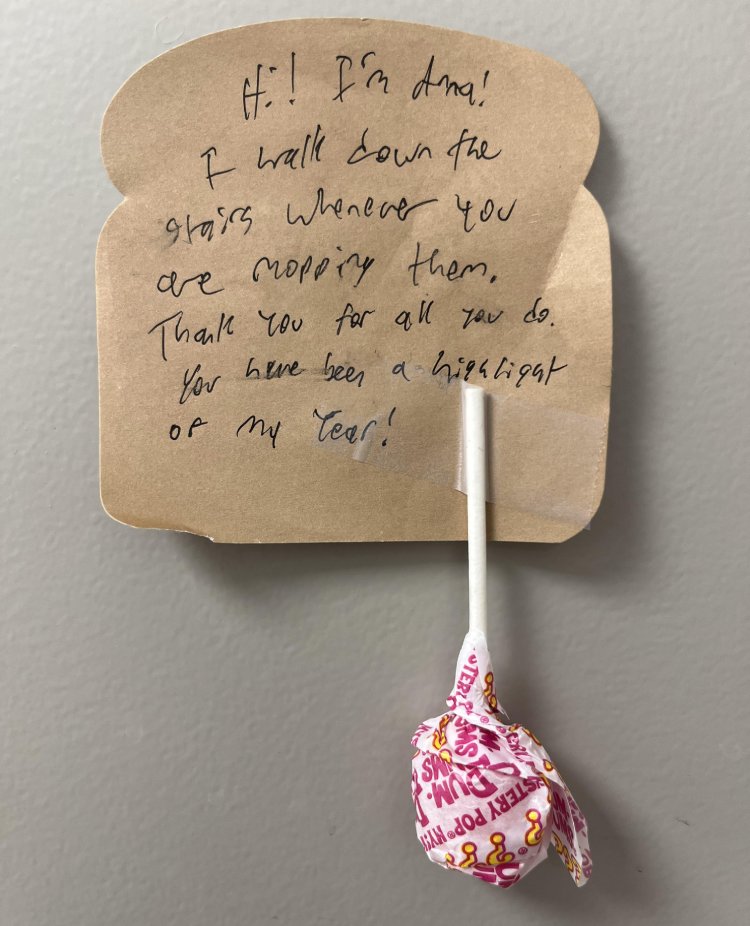 Hi! I'm Anna!
I walk down the
stairs whenever you
are mopping them.
Thank you for all you do.
You have been a highlight
of my Year!
MYSTERY POP
DUM
DUMS